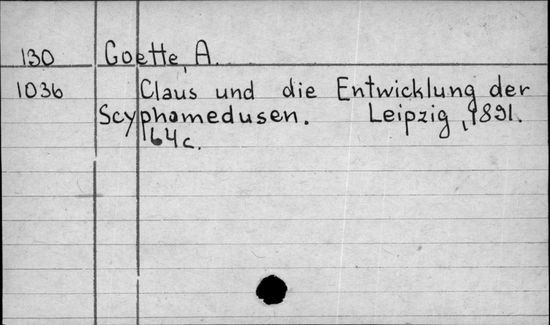 130 Goette, A.
1036 Claus und die Entwicklung der
Scyphomedusen. Leipzig, 1891.
64 c.